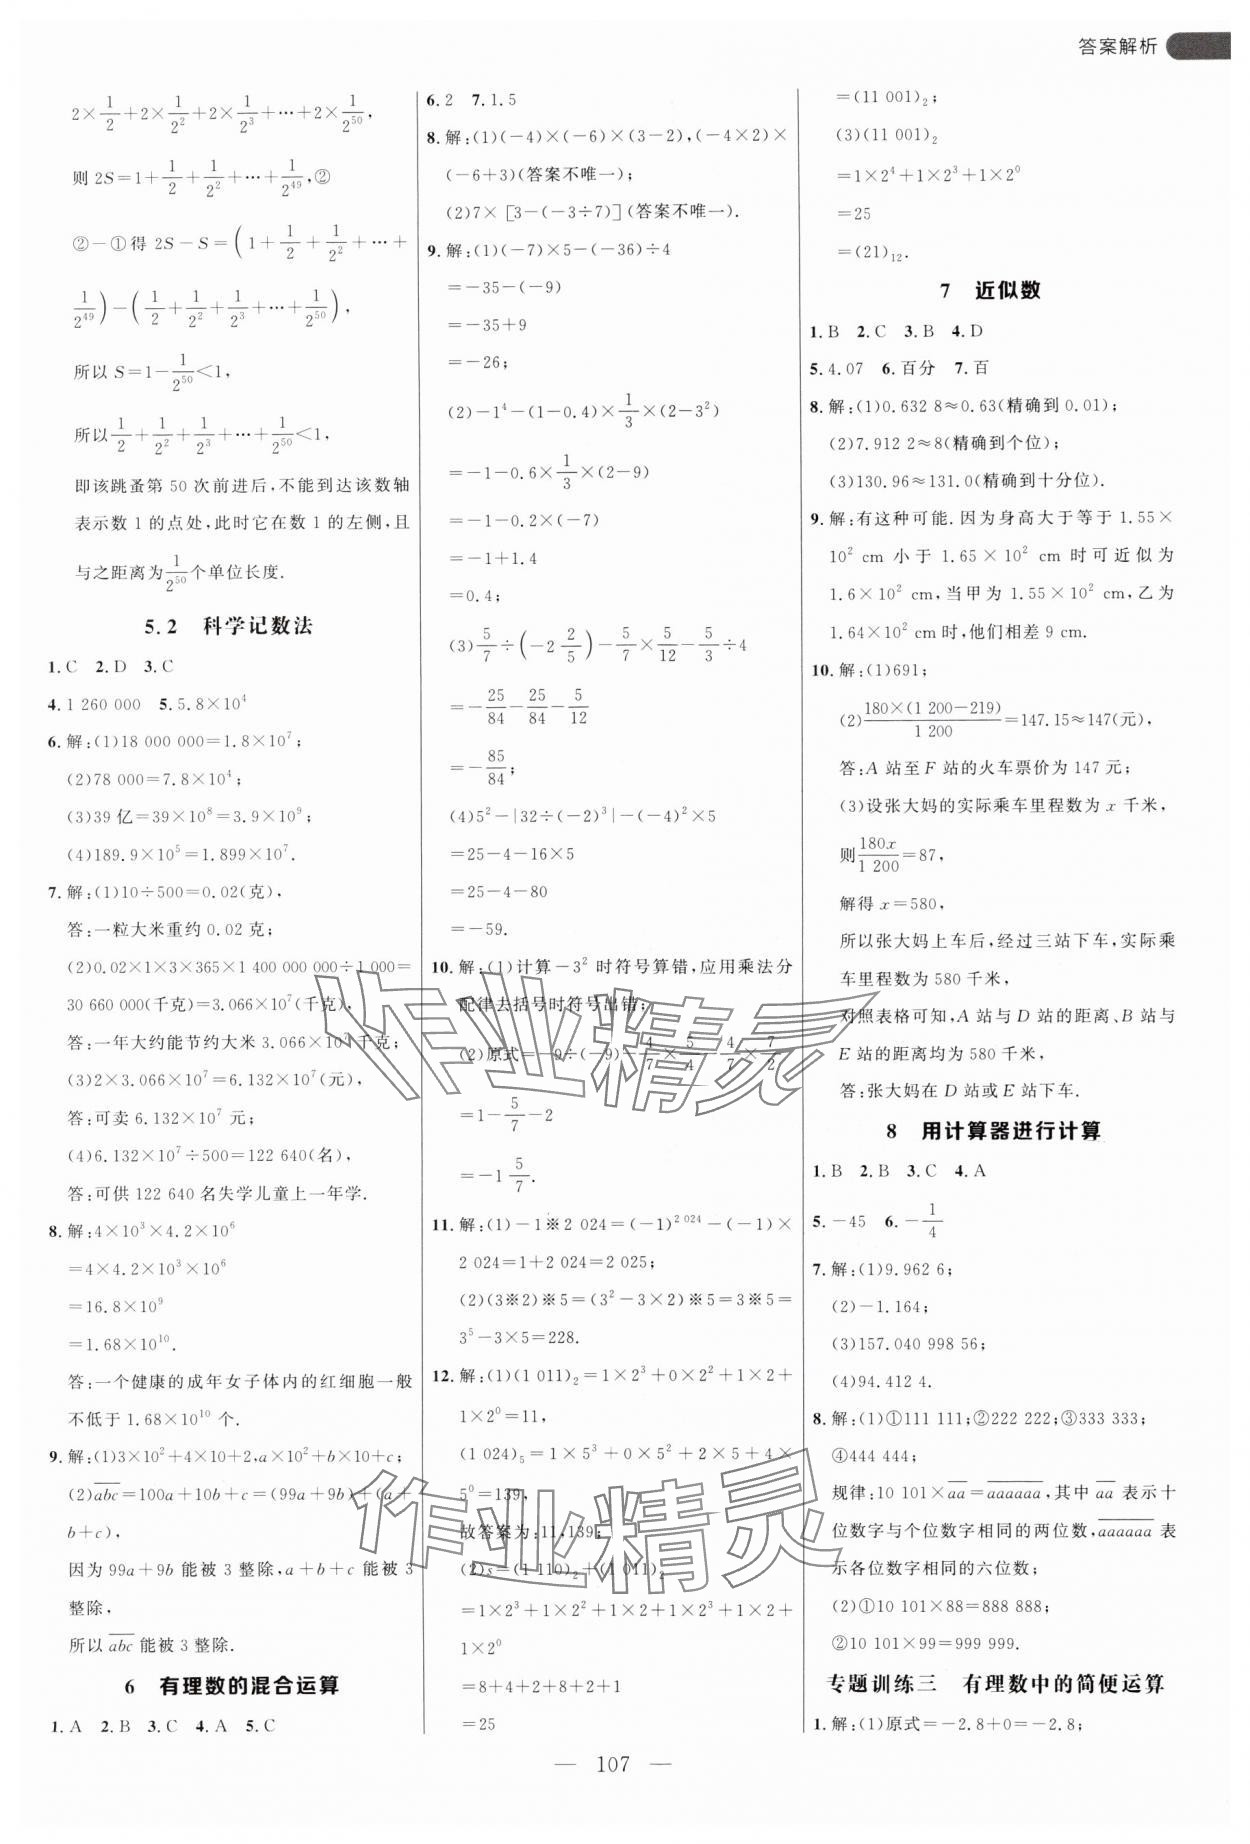 答案解析
2×1/2+2×1/2²+2×1/2³+…+2×1/2⁵⁰,
则 2S=1+1/2+1/2²+…+1/2⁴⁹,②
②-①得 2S-S=(1+1/2+1/2²+…+
1/2⁴⁹)-(1/2+1/2²+1/2³+…+1/2⁵⁰),
所以 S=1-1/2⁵⁰<1,
所以1/2+1/2²+1/2³+…+1/2⁵⁰<1,
即该跳蚤第 50 次前进后,不能到达该数轴
表示数 1 的点处,此时它在数 1 的左侧,且
与之距离为1/2⁵⁰个单位长度.
5.2 科学记数法
1.C 2.D 3.C
4.1 260 000 5.5.8×10⁴
6.解:(1)18 000 000=1.8×10⁷;
(2)78 000=7.8×10⁴;
(3)39 亿=39×10⁸=3.9×10⁹;
(4)189.9×10⁵=1.899×10⁷.
7.解:(1)10÷500=0.02(克),
答:一粒大米重约 0.02 克;
(2)0.02×1×3×365×1 400 000 000÷1 000=
30 660 000(千克)=3.066×10⁷(千克),
答:一年大约能节约大米 3.066×10⁷千克;
(3)2×3.066×10⁷=6.132×10⁷(元),
答:可卖 6.132×10⁷ 元;
(4)6.132×10⁷÷500=122 640(名),
答:可供 122 640 名失学儿童上一年学.
8.解:4×10³×4.2×10⁶
=4×4.2×10³×10⁶
=16.8×10⁹
=1.68×10¹⁰.
答:一个健康的成年女子体内的红细胞一般
不低于 1.68×10¹⁰ 个.
9.解:(1)3×10²+4×10+2,a×10²+b×10+c;
(2)a̅b̅c̅=100a+10b+c=(99a+9b)+(a+
b+c),
因为 99a+9b 能被 3 整除,a+b+c 能被 3
整除,
所以 a̅b̅c̅ 能被 3 整除.
6 有理数的混合运算
1.A 2.B 3.C 4.A 5.C
6.2 7.1.5
8.解:(1)(-4)×(-6)×(3-2),(-4×2)×
(-6+3)(答案不唯一);
(2)7×[3-(-3÷7)](答案不唯一).
9.解:(1)(-7)×5-(-36)÷4
=-35-(-9)
=-35+9
=-26;
(2)-1⁴-(1-0.4)×1/3×(2-3²)
=-1-0.6×1/3×(2-9)
=-1-0.2×(-7)
=-1+1.4
=0.4;
(3)5/7÷(-2 2/5)-5/7×5/12-5/3÷4
=-25/84-25/84-5/12
=-85/84;
(4)5²-|32÷(-2)³|-(-4)²×5
=25-4-16×5
=25-4-80
=-59.
10.解:(1)计算-3² 时符号算错,应用乘法分
配律去括号时符号出错;
(2)原式=-9÷(-9)-4/7×5/4-4/7×7/2
=1-5/7-2
=-1 5/7.
11.解:(1)-1※2 024=(-1)²⁰²⁴-(-1)×
2 024=1+2 024=2 025;
(2)(3※2)※5=(3²-3×2)※5=3※5=
3⁵-3×5=228.
12.解:(1)(1 011)₂=1×2³+0×2²+1×2+
1×2⁰=11,
(1 024)₅=1×5³+0×5²+2×5+4×
5⁰=139,
故答案为:11,139;
(2)s=(1 110)₂+(1 011)₂
=1×2³+1×2²+1×2+1×2³+1×2+
1×2⁰
=8+4+2+8+2+1
=25
=(11 001)₂;
(3)(11 001)₂
=1×2⁴+1×2³+1×2⁰
=25
=(21)₁₂.
7 近似数
1.B 2.C 3.B 4.D
5.4.07 6.百分 7.百
8.解:(1)0.632 8≈0.63(精确到 0.01);
(2)7.912 2≈8(精确到个位);
(3)130.96≈131.0(精确到十分位).
9.解:有这种可能.因为身高大于等于 1.55×
10² cm 小于 1.65×10² cm 时可近似为
1.6×10² cm,当甲为 1.55×10² cm,乙为
1.64×10² cm 时,他们相差 9 cm.
10.解:(1)691;
(2)180×(1 200-219)/1 200=147.15≈147(元),
答:A 站至 F 站的火车票价为 147 元;
(3)设张大妈的实际乘车里程数为 x 千米,
则180x/1 200=87,
解得 x=580,
所以张大妈上车后,经过三站下车,实际乘
车里程数为 580 千米,
对照表格可知,A 站与 D 站的距离、B 站与
E 站的距离均为 580 千米,
答:张大妈在 D 站或 E 站下车.
8 用计算器进行计算
1.B 2.B 3.C 4.A
5.-45 6.-1/4
7.解:(1)9.962 6;
(2)-1.164;
(3)157.040 998 56;
(4)94.412 4.
8.解:(1)①111 111;②222 222;③333 333;
④444 444;
规律:10 101×a̅a̅=a̅a̅a̅a̅a̅a̅,其中 a̅a̅ 表示十
位数字与个位数字相同的两位数,a̅a̅a̅a̅a̅a̅ 表
示各位数字相同的六位数;
(2)①10 101×88=888 888;
②10 101×99=999 999.
专题训练三 有理数中的简便运算
1.解:(1)原式=-2.8+0=-2.8;
— 107 —
作业精灵
作业精灵